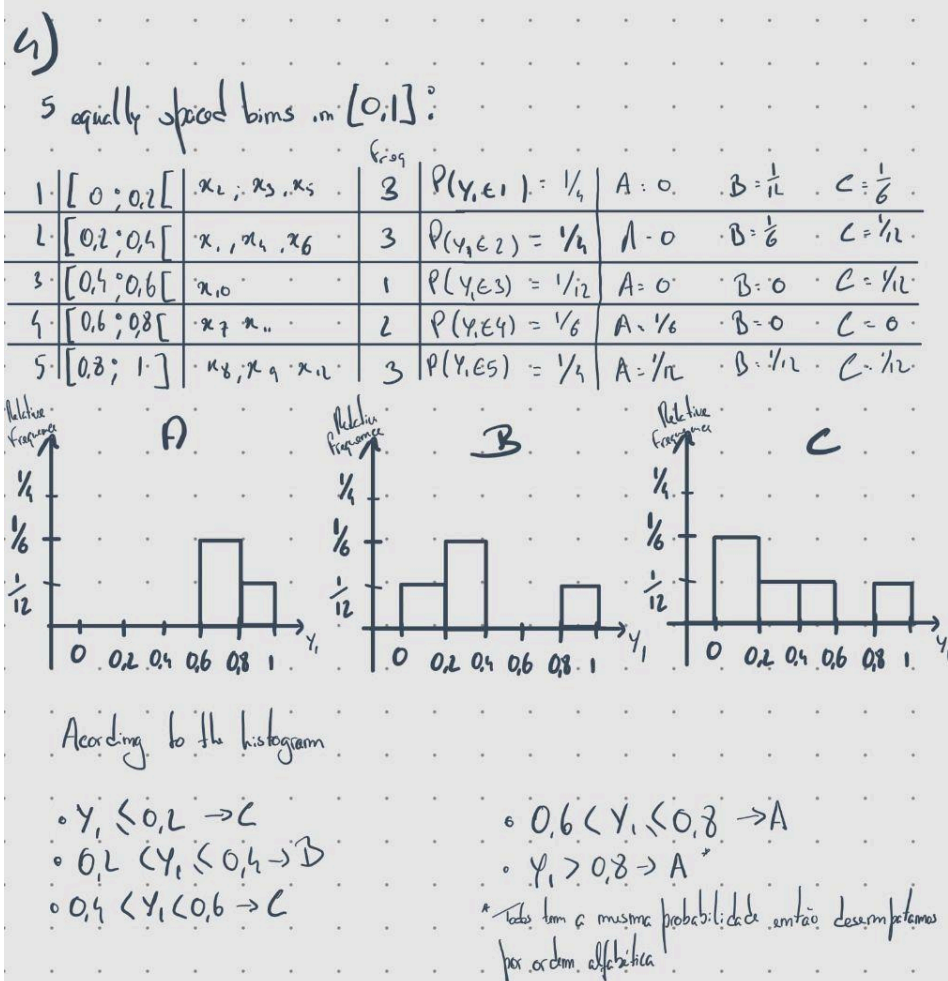 4)
5 equally spaced bins in [0;1]:
Freq
1 [0;0,2[ x2; x3, x5 3 P(Y1∈1) = 1/4 A: 0 B = 1/12 C = 1/6
2 [0,2;0,4[ x1, x4, x6 3 P(Y1∈2) = 1/4 A = 0 B = 1/6 C = 1/12
3 [0,4;0,6[ x10 1 P(Y1∈3) = 1/12 A = 0 B = 0 C = 1/12
4 [0,6;0,8[ x7 x11 2 P(Y1∈4) = 1/6 A = 1/6 B = 0 C = 0
5 [0,8; 1] x8, x9 x12 3 P(Y1∈5) = 1/4 A = 1/12 B = 1/12 C = 1/12
Relative A Relative B Relative C
1/4 1/4 1/4
1/6 1/6 1/6
1/12 1/12 1/12
0 0,2 0,4 0,6 0,8 1 Y1 0 0,2 0,4 0,6 0,8 1 Y1 0 0,2 0,4 0,6 0,8 1 Y1
Acording to the histogram
• Y1 ≤ 0,2 → C
• 0,2 < Y1 ≤ 0,4 → B
• 0,4 < Y1 < 0,6 → C
• 0,6 < Y1 ≤ 0,8 → A
• Y1 > 0,8 → A *
* Todos tem a mesma probabilidade então desempatamos
por ordem alfabética